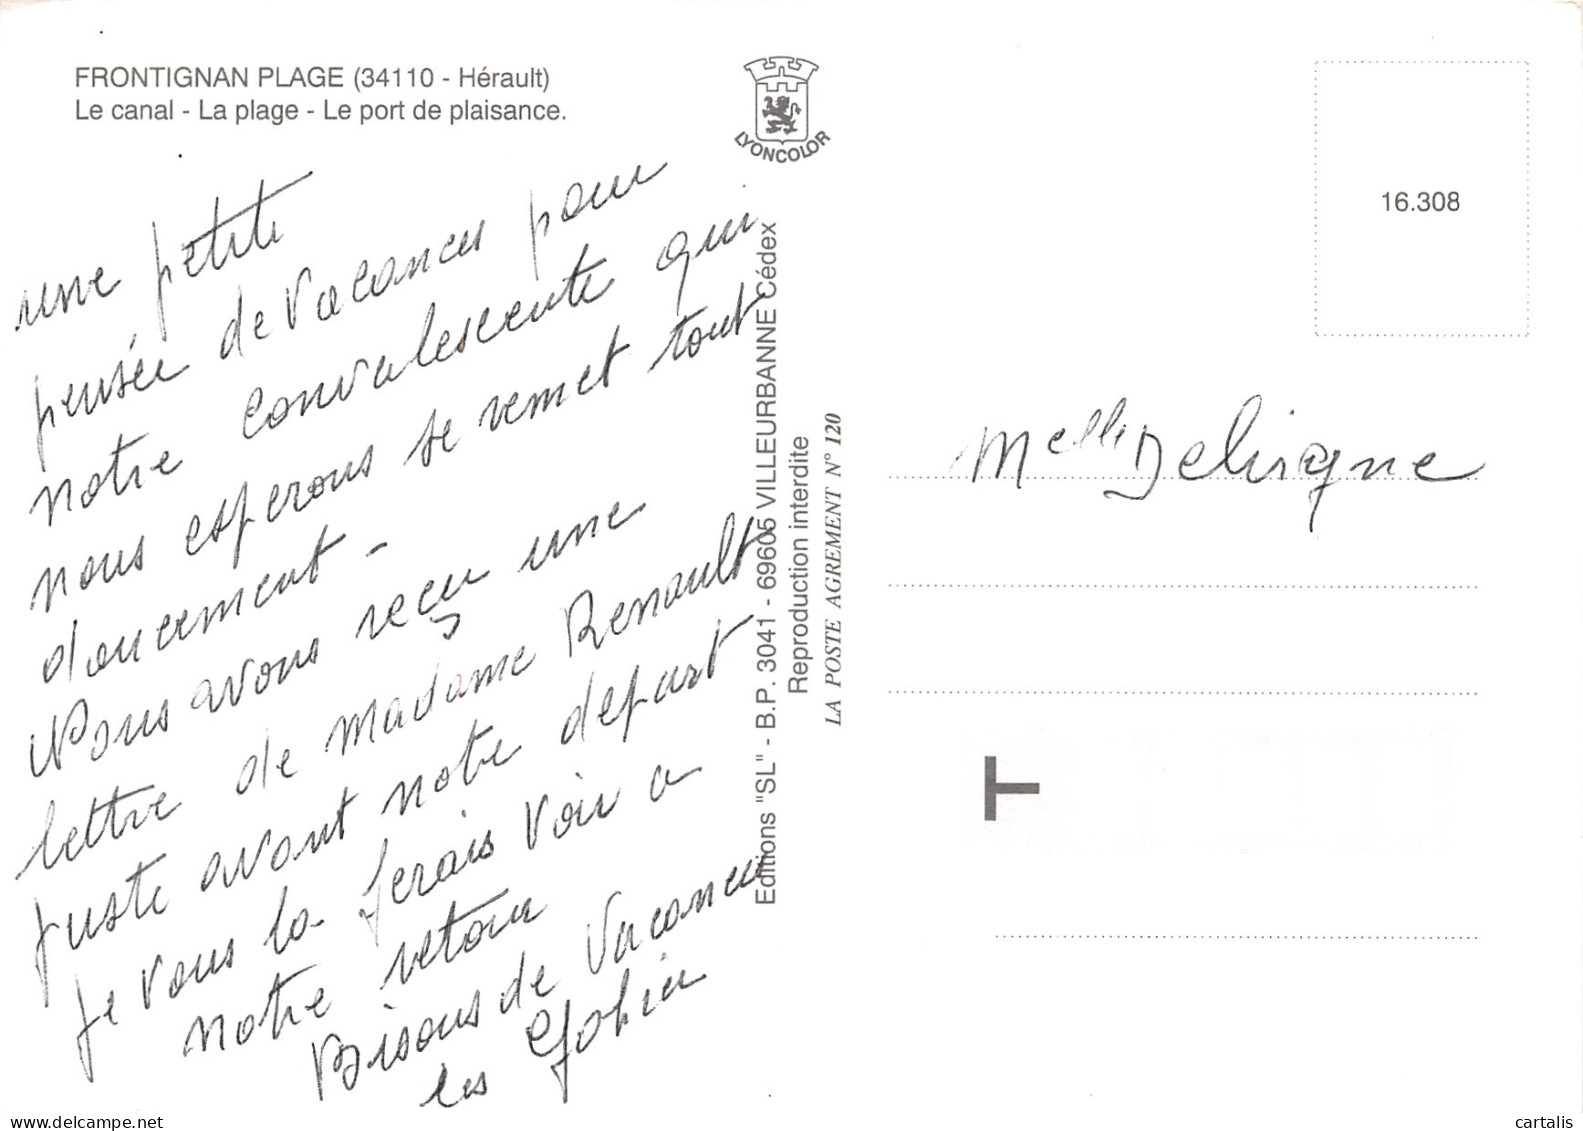 FRONTIGNAN PLAGE (34110 - Hérault)
Le canal - La plage - Le port de plaisance.
LYONCOLOR
une petite
pensée de Vacances pour
notre convalescente qui
nous esperons se remet tout
doucement -
Nous avons reçu une
lettre de Madame Renault
juste avant notre depart
je vous la ferais voir a
notre retour
Bisous de Vacances
les
Editions "SL" - B.P. 3041 - 69605 VILLEURBANNE Cédex
Reproduction interdite
LA POSTE AGREMENT N° 120
16.308
Melle Delirque
T
delcampe.net
cartalis